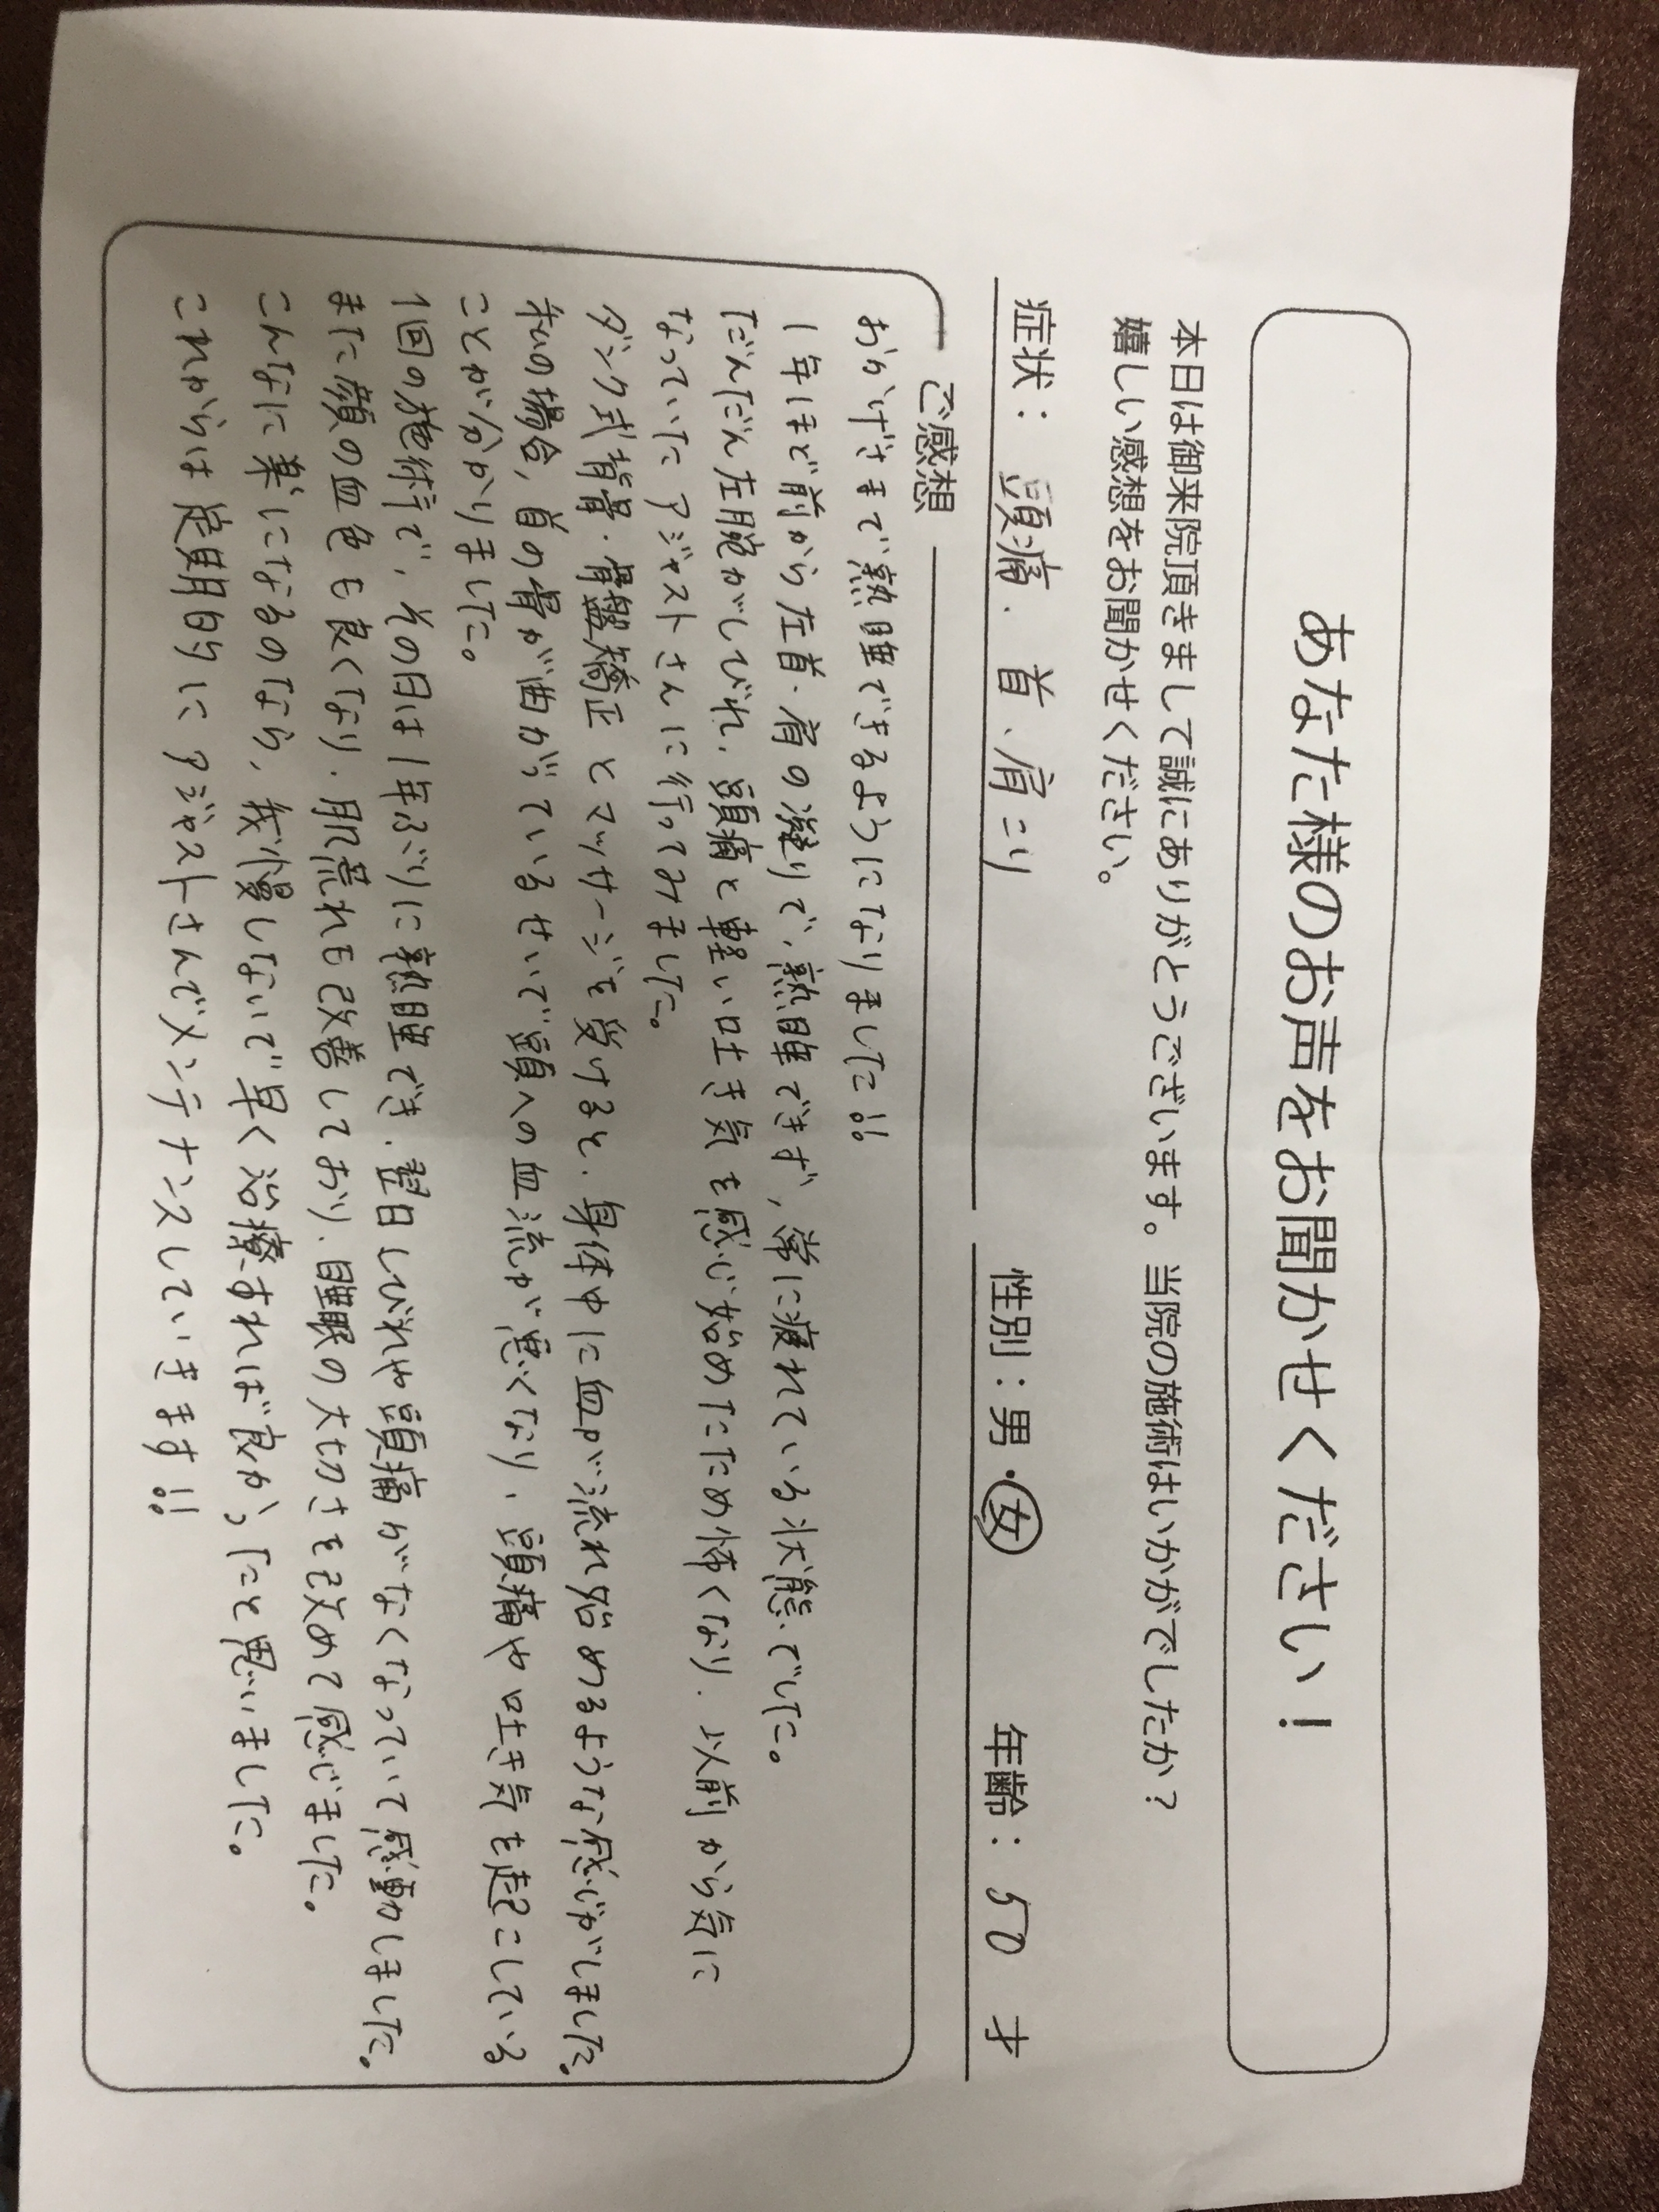 あなた様のお声をお聞かせください！
本日は御来院頂きまして誠にありがとうございます。当院の施術はいかがでしたか？
嬉しい感想をお聞かせください。
症状： 頭痛. 首、肩こり 性別：男・女 年齢：50 才
ご感想
おかげさまで熟睡できるようになりました!!
1年ほど前から左首、肩の凝りで、熟睡できず、常に疲れている状態でした。
だんだん左腕がしびれ、頭痛と軽い吐き気を感じ始めたため怖くなり、以前から気に
なっていたアジャストさんに行ってみました。
ダンク式背骨・骨盤矯正とマッサージを受けると、身体中に血が流れ始めるような感じがしました。
私の場合、首の骨が曲がっているせいで頭への血流が悪くなり、頭痛や吐き気を起こしている
ことが分かりました。
1回の施術で、その日は1年ぶりに熟睡でき、翌日しびれや頭痛がなくなっていて感動しました。
また顔の血色も良くなり、肌荒れも改善しており、睡眠の大切さを改めて感じました。
こんなに楽になるのなら、我慢しないで早く治療すれば良かったと思いました。
これからは定期的にアジャストさんでメンテナンスしていきます!!